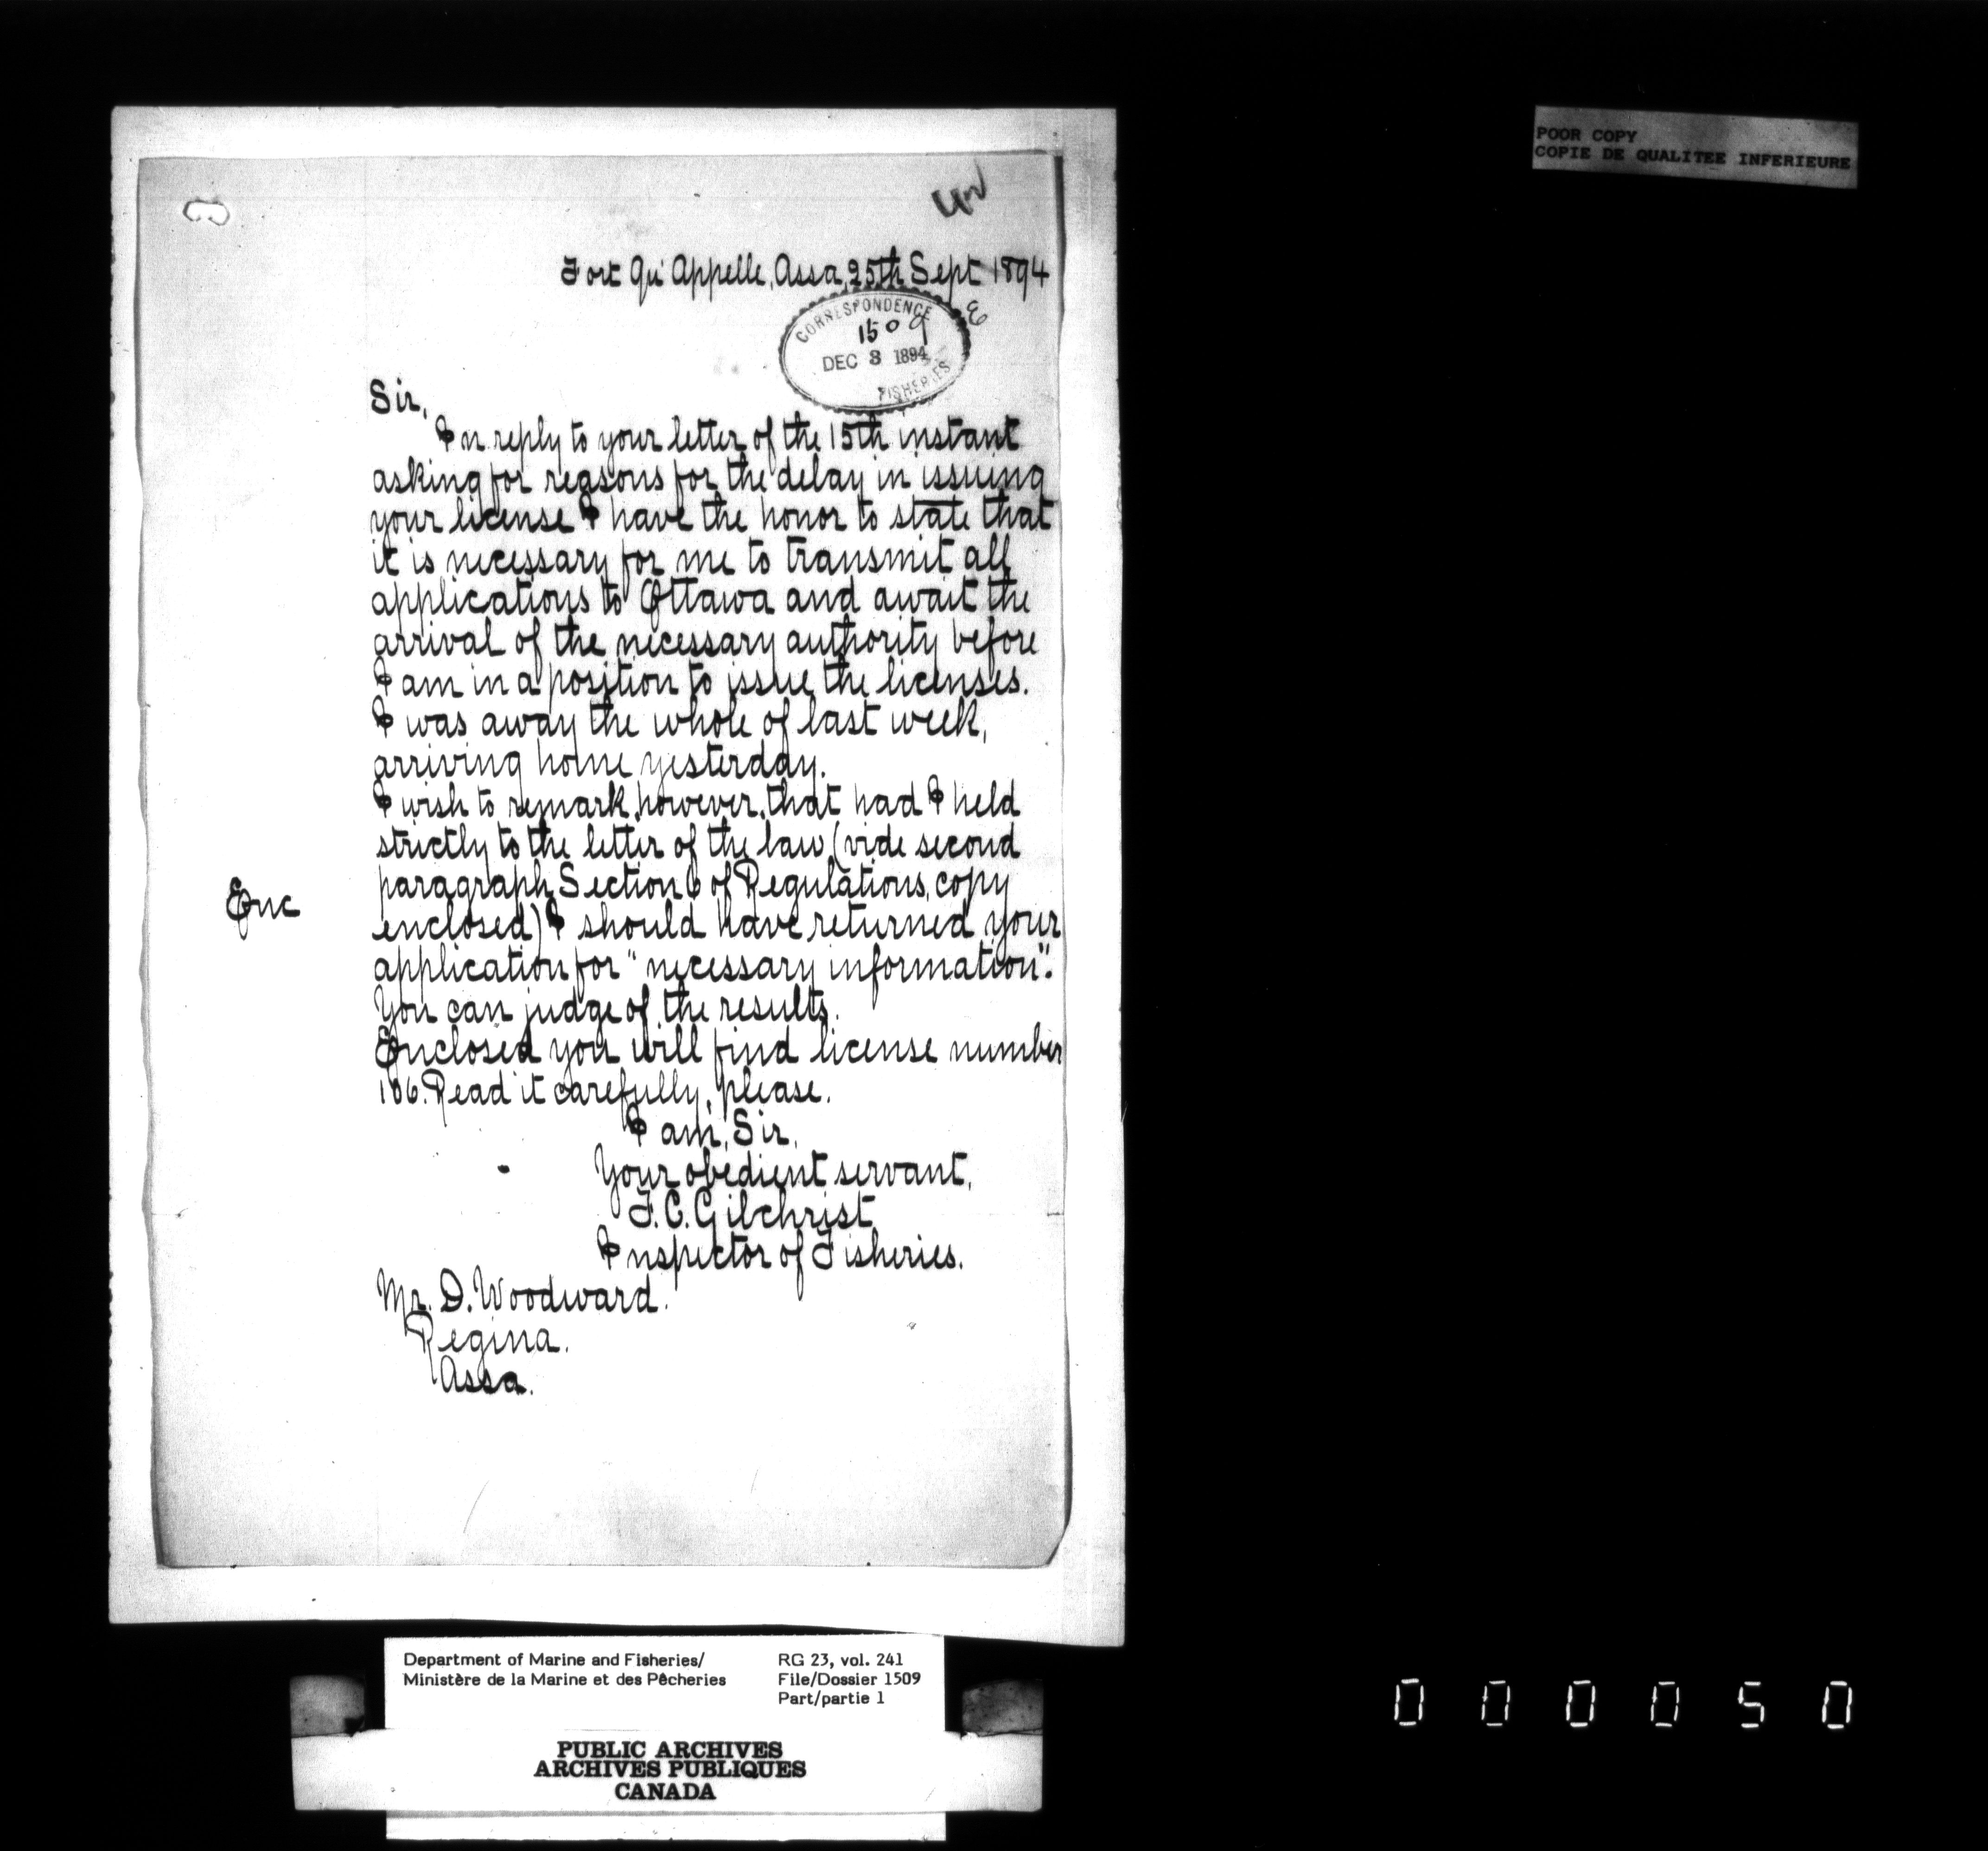 POOR COPY
COPIE DE QUALITEE INFERIEURE
Fort Qu'Appelle, Assa, 25th Sept 1894
CORRESPONDENCE
1509
DEC 3 1894
FISHERIES
Sir,
In reply to your letter of the 15th instant
asking for reasons for the delay in issuing
your license I have the honor to state that
it is necessary for me to transmit all
applications to Ottawa and await the
arrival of the necessary authority before
I am in a position to issue the licenses.
I was away the whole of last week,
arriving home yesterday.
I wish to remark, however, that had I held
strictly to the letter of the law (vide second
paragraph Section 6 of Regulations, copy
Enc
enclosed) I should have returned your
application for "necessary information".
You can judge of the results.
Enclosed you will find license number
106. Read it carefully, please.
I am, Sir,
Your obedient servant,
F.C. Gilchrist
Inspector of Fisheries.
Mr. D. Woodward.
Regina.
Assa.
Department of Marine and Fisheries/
Ministère de la Marine et des Pêcheries
RG 23, vol. 241
File/Dossier 1509
Part/partie 1
PUBLIC ARCHIVES
ARCHIVES PUBLIQUES
CANADA
000050